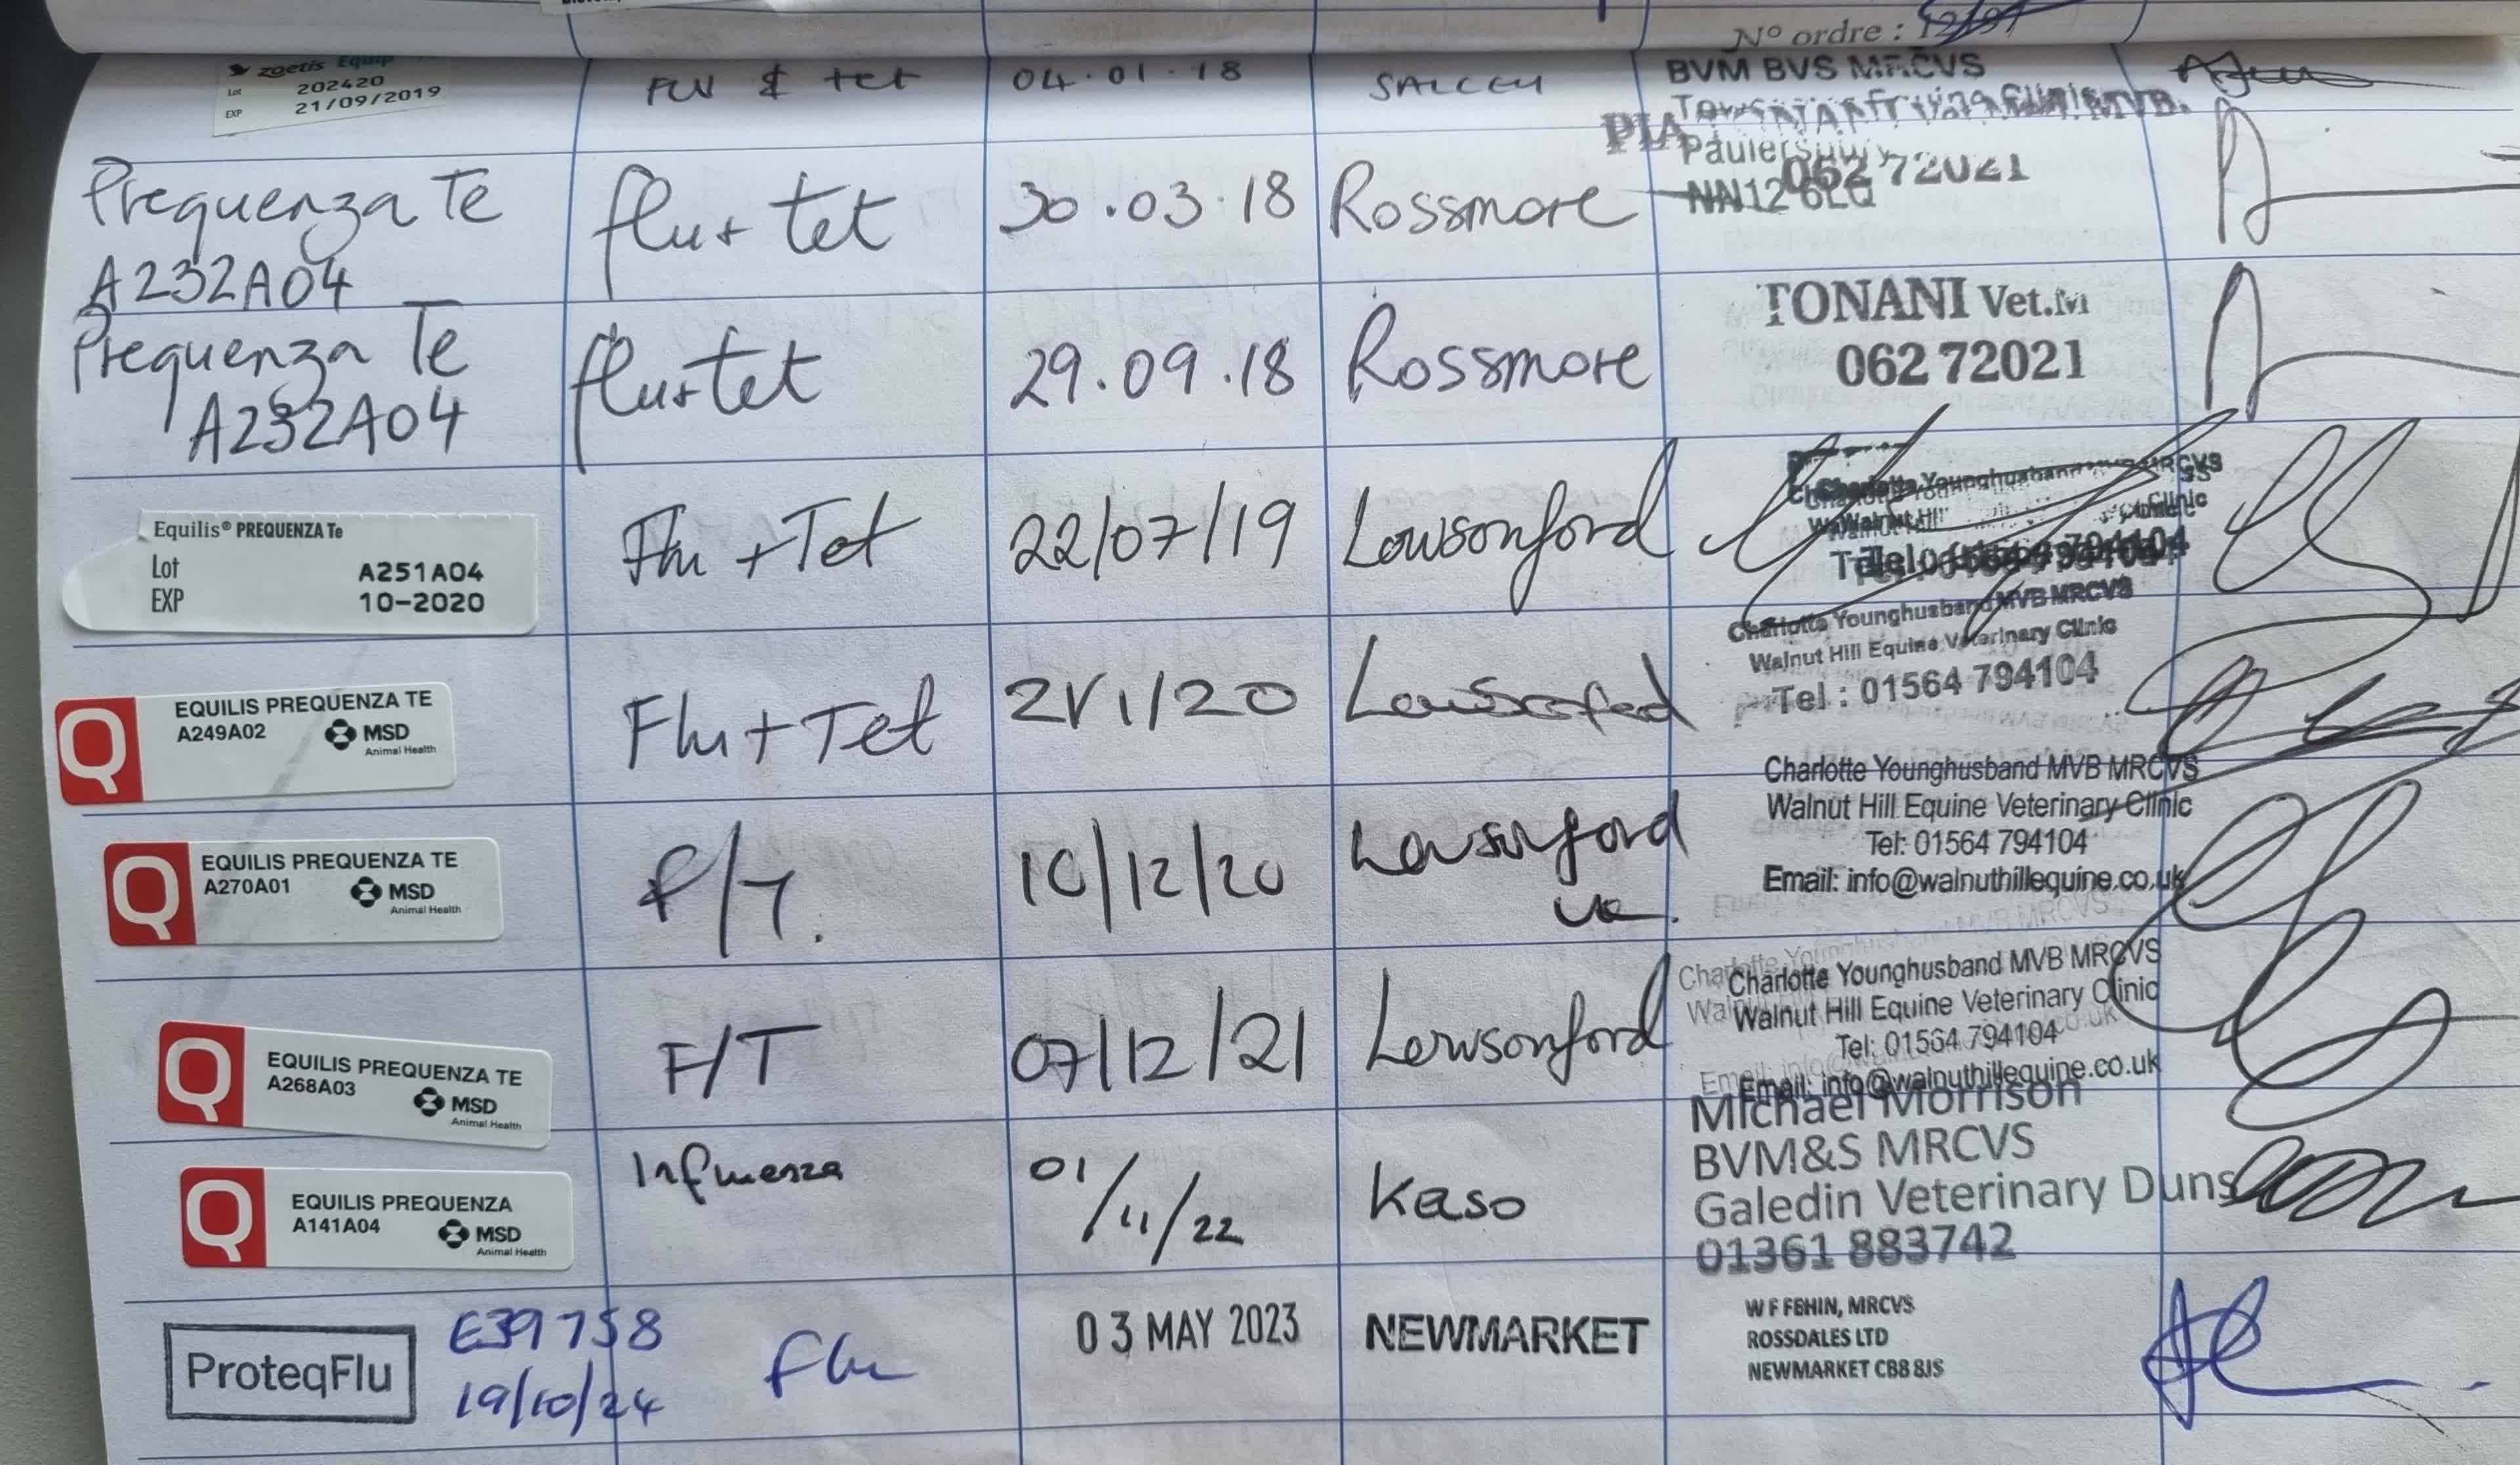 Nº ordre :
zoetis Equip
Lot 202420
EXP 21/09/2019
FLU & tet
04.01.18
BVM BVS MRCVS
NN12 6LQ
Prequenza Te
A232A04
flu + tet
30.03.18
Rossmore
062 72021
Prequenza Te
A232A04
flu + tet
29.09.18
Rossmore
TONANI Vet.M
062 72021
Equilis® PREQUENZA Te
Lot A251A04
EXP 10-2020
Flu + Tet
22/07/19
Lowsonford
Charlotte Younghusband MVB MRCVS
Walnut Hill Equine Veterinary Clinic
Tel : 01564 794104
EQUILIS PREQUENZA TE
A249A02
MSD
Animal Health
Flu + Tet
Charlotte Younghusband MVB MRCVS
Walnut Hill Equine Veterinary Clinic
Tel: 01564 794104
Email: info@walnuthillequine.co.uk
EQUILIS PREQUENZA TE
A270A01
MSD
Animal Health
F/T.
10/12/20
Lowsonford
UK.
Charlotte Younghusband MVB MRCVS
Walnut Hill Equine Veterinary Clinic
Tel: 01564 794104
Email: info@walnuthillequine.co.uk
EQUILIS PREQUENZA TE
A268A03
MSD
Animal Health
F/T
07/12/21
Lowsonford
Michael Morrison
BVM&S MRCVS
Galedin Veterinary Duns
01361 883742
EQUILIS PREQUENZA
A141A04
MSD
Animal Health
Influenza
01/11/22
Kelso
ProteqFlu
E39758
19/10/24
Flu
03 MAY 2023
NEWMARKET
W F FEHIN, MRCVS
ROSSDALES LTD
NEWMARKET CB8 8JS